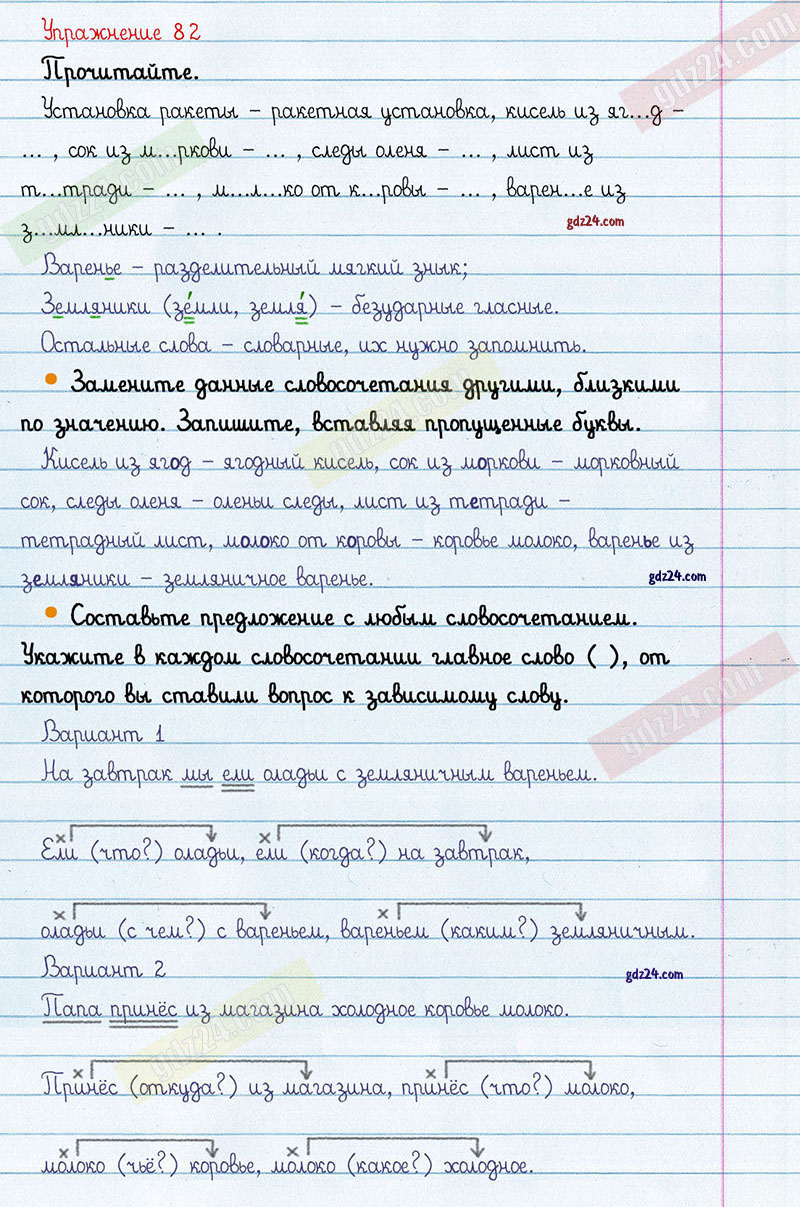 Упражнение 82
gdz24.com
Прочитайте.
Установка ракеты – ракетная установка, кисель из яг...д –
... , сок из м...ркови – ... , следы оленя – ... , лист из
gdz24.com
т...тради – ... , м...л...ко от к...ровы – ... , варен...е из
з...мл...ники – ... .
gdz24.com
Варенье – разделительный мягкий знык;
Земляники (зе́мли, земля́) – безударные гласные.
Остальные слова – словарные, их нужно запомнить.
• Замените данные словосочетания другими, близкими
gdz24.com
по значению. Запишите, вставляя пропущенные буквы.
Кисель из ягод – ягодный кисель, сок из моркови – морковный
сок, следы оленя – оленьи следы, лист из тетради –
тетрадный лист, молоко от коровы – коровье молоко, варенье из
земляники – земляничное варенье.
gdz24.com
• Составьте предложение с любым словосочетанием.
Укажите в каждом словосочетании главное слово ( ), от
которого вы ставили вопрос к зависимому слову.
gdz24.com
Вариант 1
На завтрак мы ели оладьи с земляничным вареньем.
х х
Ели (что?) оладьи, ели (когда?) на завтрак,
х х
оладьи (с чем?) с вареньем, вареньем (каким?) земляничным.
Вариант 2
gdz24.com
Папа принёс из магазина холодное коровье молоко.
gdz24.com
х х
Принёс (откуда?) из магазина, принёс (что?) молоко,
х х
молоко (чьё?) коровье, молоко (какое?) холодное.